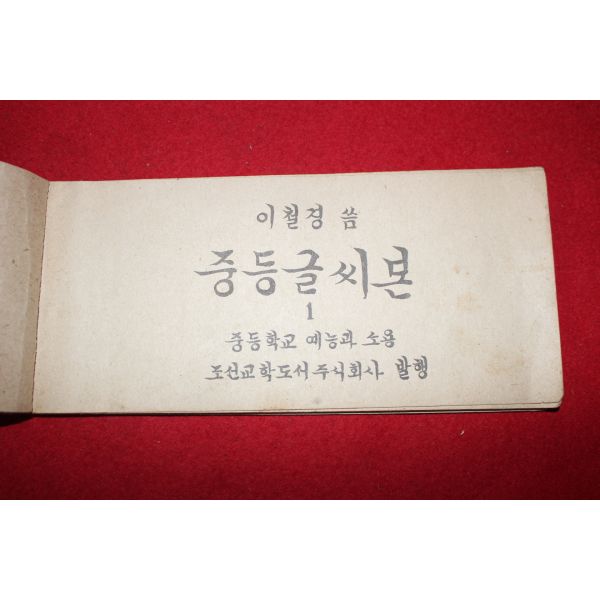 이철경 씀
중등글씨본
1
중등학교 예능과 소용
조선교학도서주식회사 발행